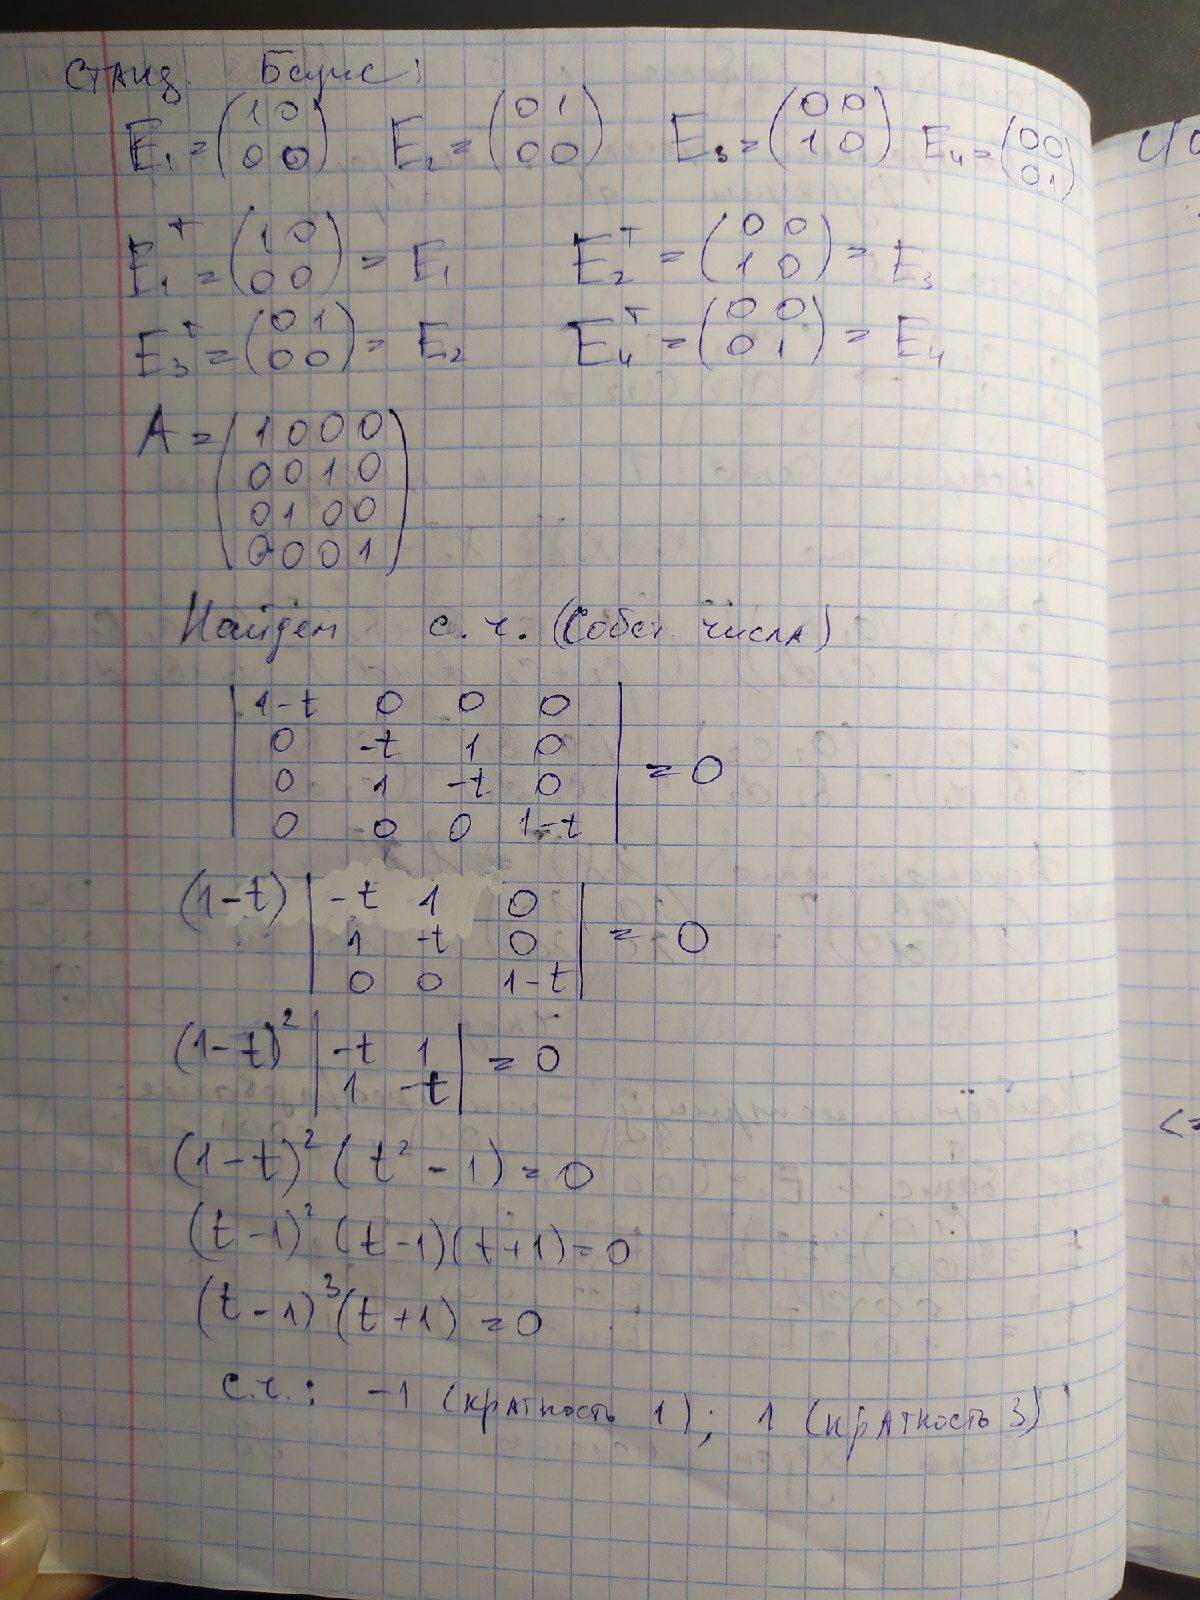 Станд. Базис:
E₁ = (1 0 / 0 0) E₂ = (0 1 / 0 0) E₃ = (0 0 / 1 0) E₄ = (0 0 / 0 1)
E₁ᵀ = (1 0 / 0 0) = E₁ E₂ᵀ = (0 0 / 1 0) = E₃
E₃ᵀ = (0 1 / 0 0) = E₂ E₄ᵀ = (0 0 / 0 1) = E₄
A = (1 0 0 0
0 0 1 0
0 1 0 0
0 0 0 1)
Найдем с.ч. (Собст. числа)
|1-t 0 0 0|
|0 -t 1 0| = 0
|0 1 -t 0|
|0 0 0 1-t|
(1-t) |-t 1 0|
|1 -t 0| = 0
|0 0 1-t|
(1-t)² |-t 1| = 0
|1 -t|
(1-t)² (t² - 1) = 0
(t-1)² (t-1)(t+1) = 0
(t-1)³(t+1) = 0
с.ч.: -1 (кратность 1); 1 (кратность 3)